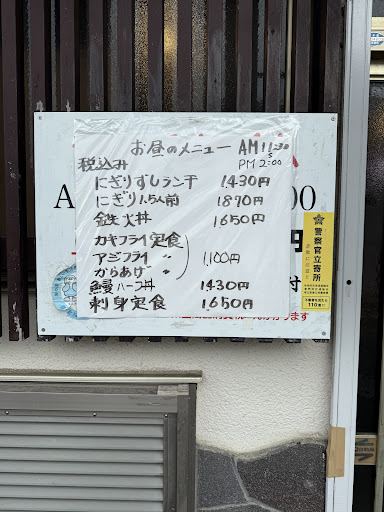 お昼のメニュー AM11:30
税込み PM2:00
にぎりずしランチ 1430円
にぎり1.5人前 1870円
鉄火丼 1650円
カキフライ定食
アジフライ 〃 1,100円
からあげ 〃
鰻ハーフ丼 1430円
刺身定食 1650円
A 00
円
付
警察官立寄所
110番